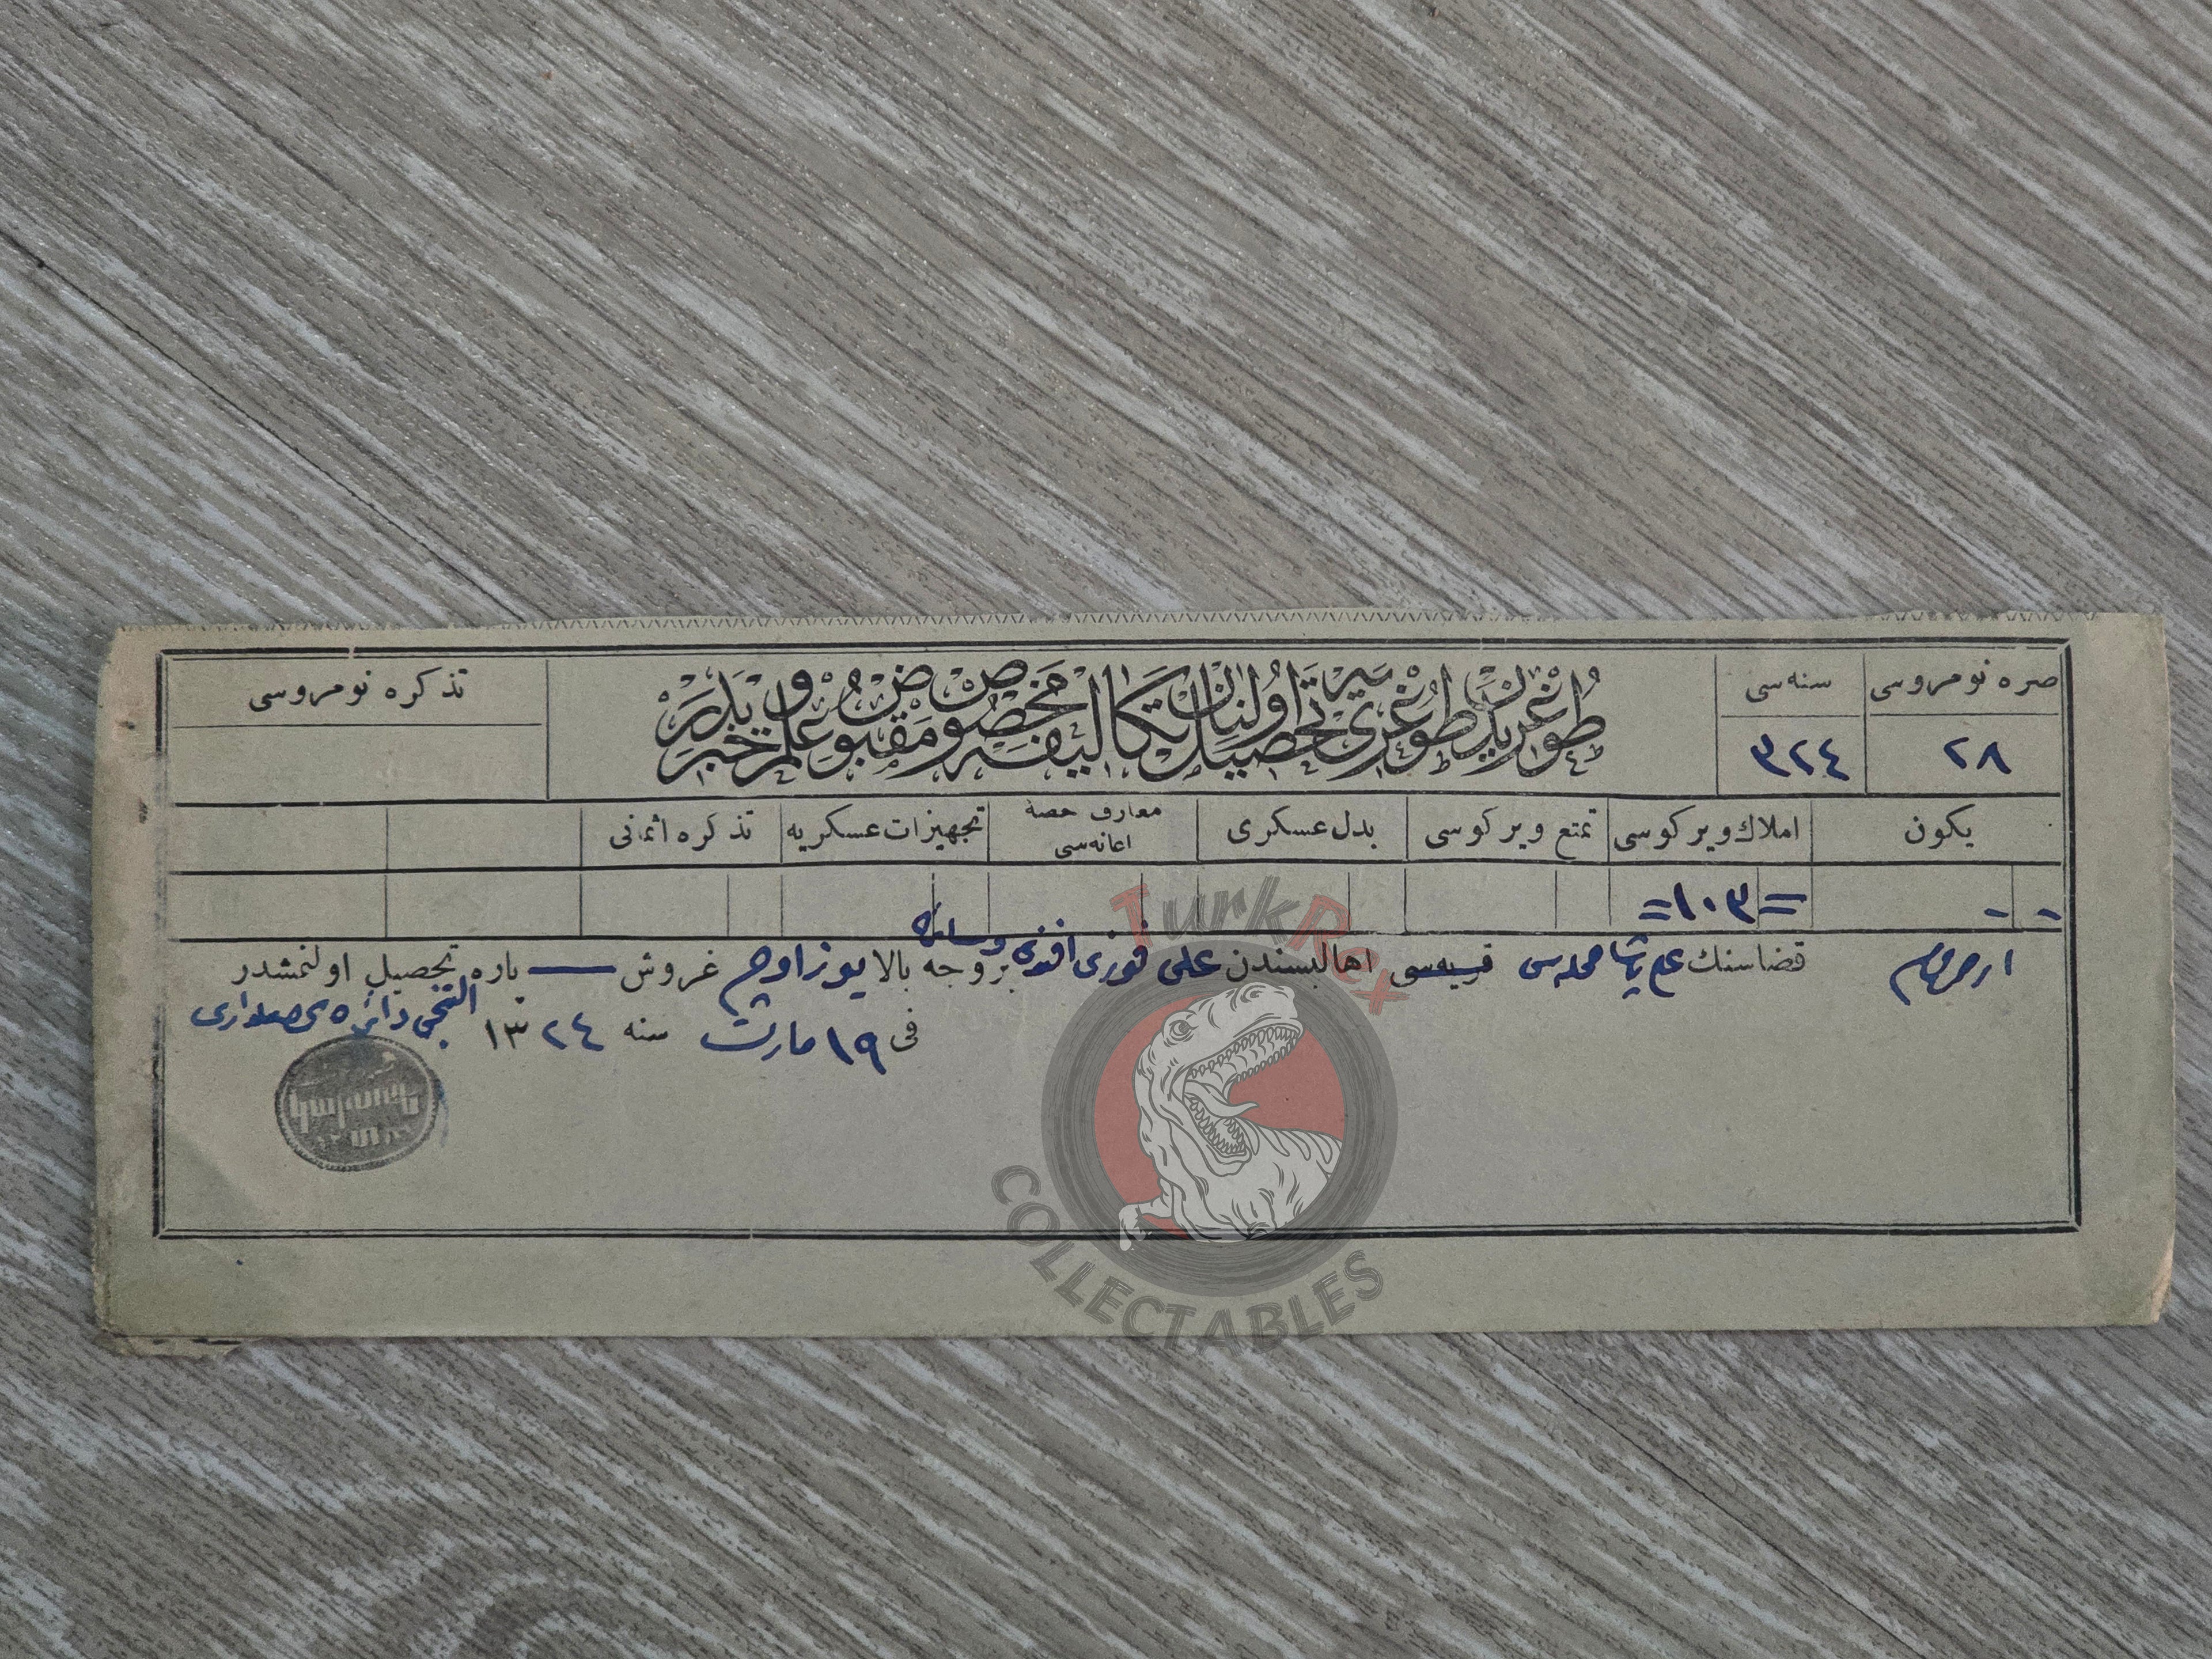 صره نومروسی
سنه سی
طوغریدن طوغری یه تحصیل اولنان تکالیفه مخصوص مقبوض علم و خبریدر
تذکره نومروسی
٢٨
٣٢٤
یکون
املاك ویرکوسی
تمتع ویرکوسی
بدل عسکری
معارف حصهٔ اعانه سی
تجهیزات عسکریه
تذکره اثمانی
=١٠٣=
قضاسنك علی پاشا محله سی قریه سی اهالیسندن علی فوزی افندی بروجه بالا یوز اوچ غروش — پاره تحصیل اولنمشدر
فی ١٩ مارت سنه ١٣٢٤
TurkRex
COLLECTABLES